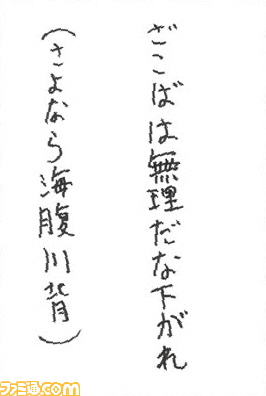 ざこばは無理だな下がれ
(さよなら海腹川背)
ファミ通.com